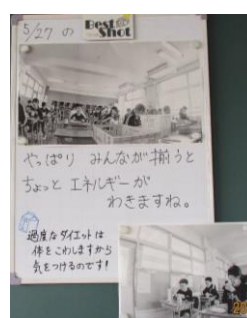 5/27 の Best Shot
やっぱり みんなが揃うと
ちょっと エネルギーが
わきますね。
過度なダイエットは
体をこわしますから
気をつけるのです!